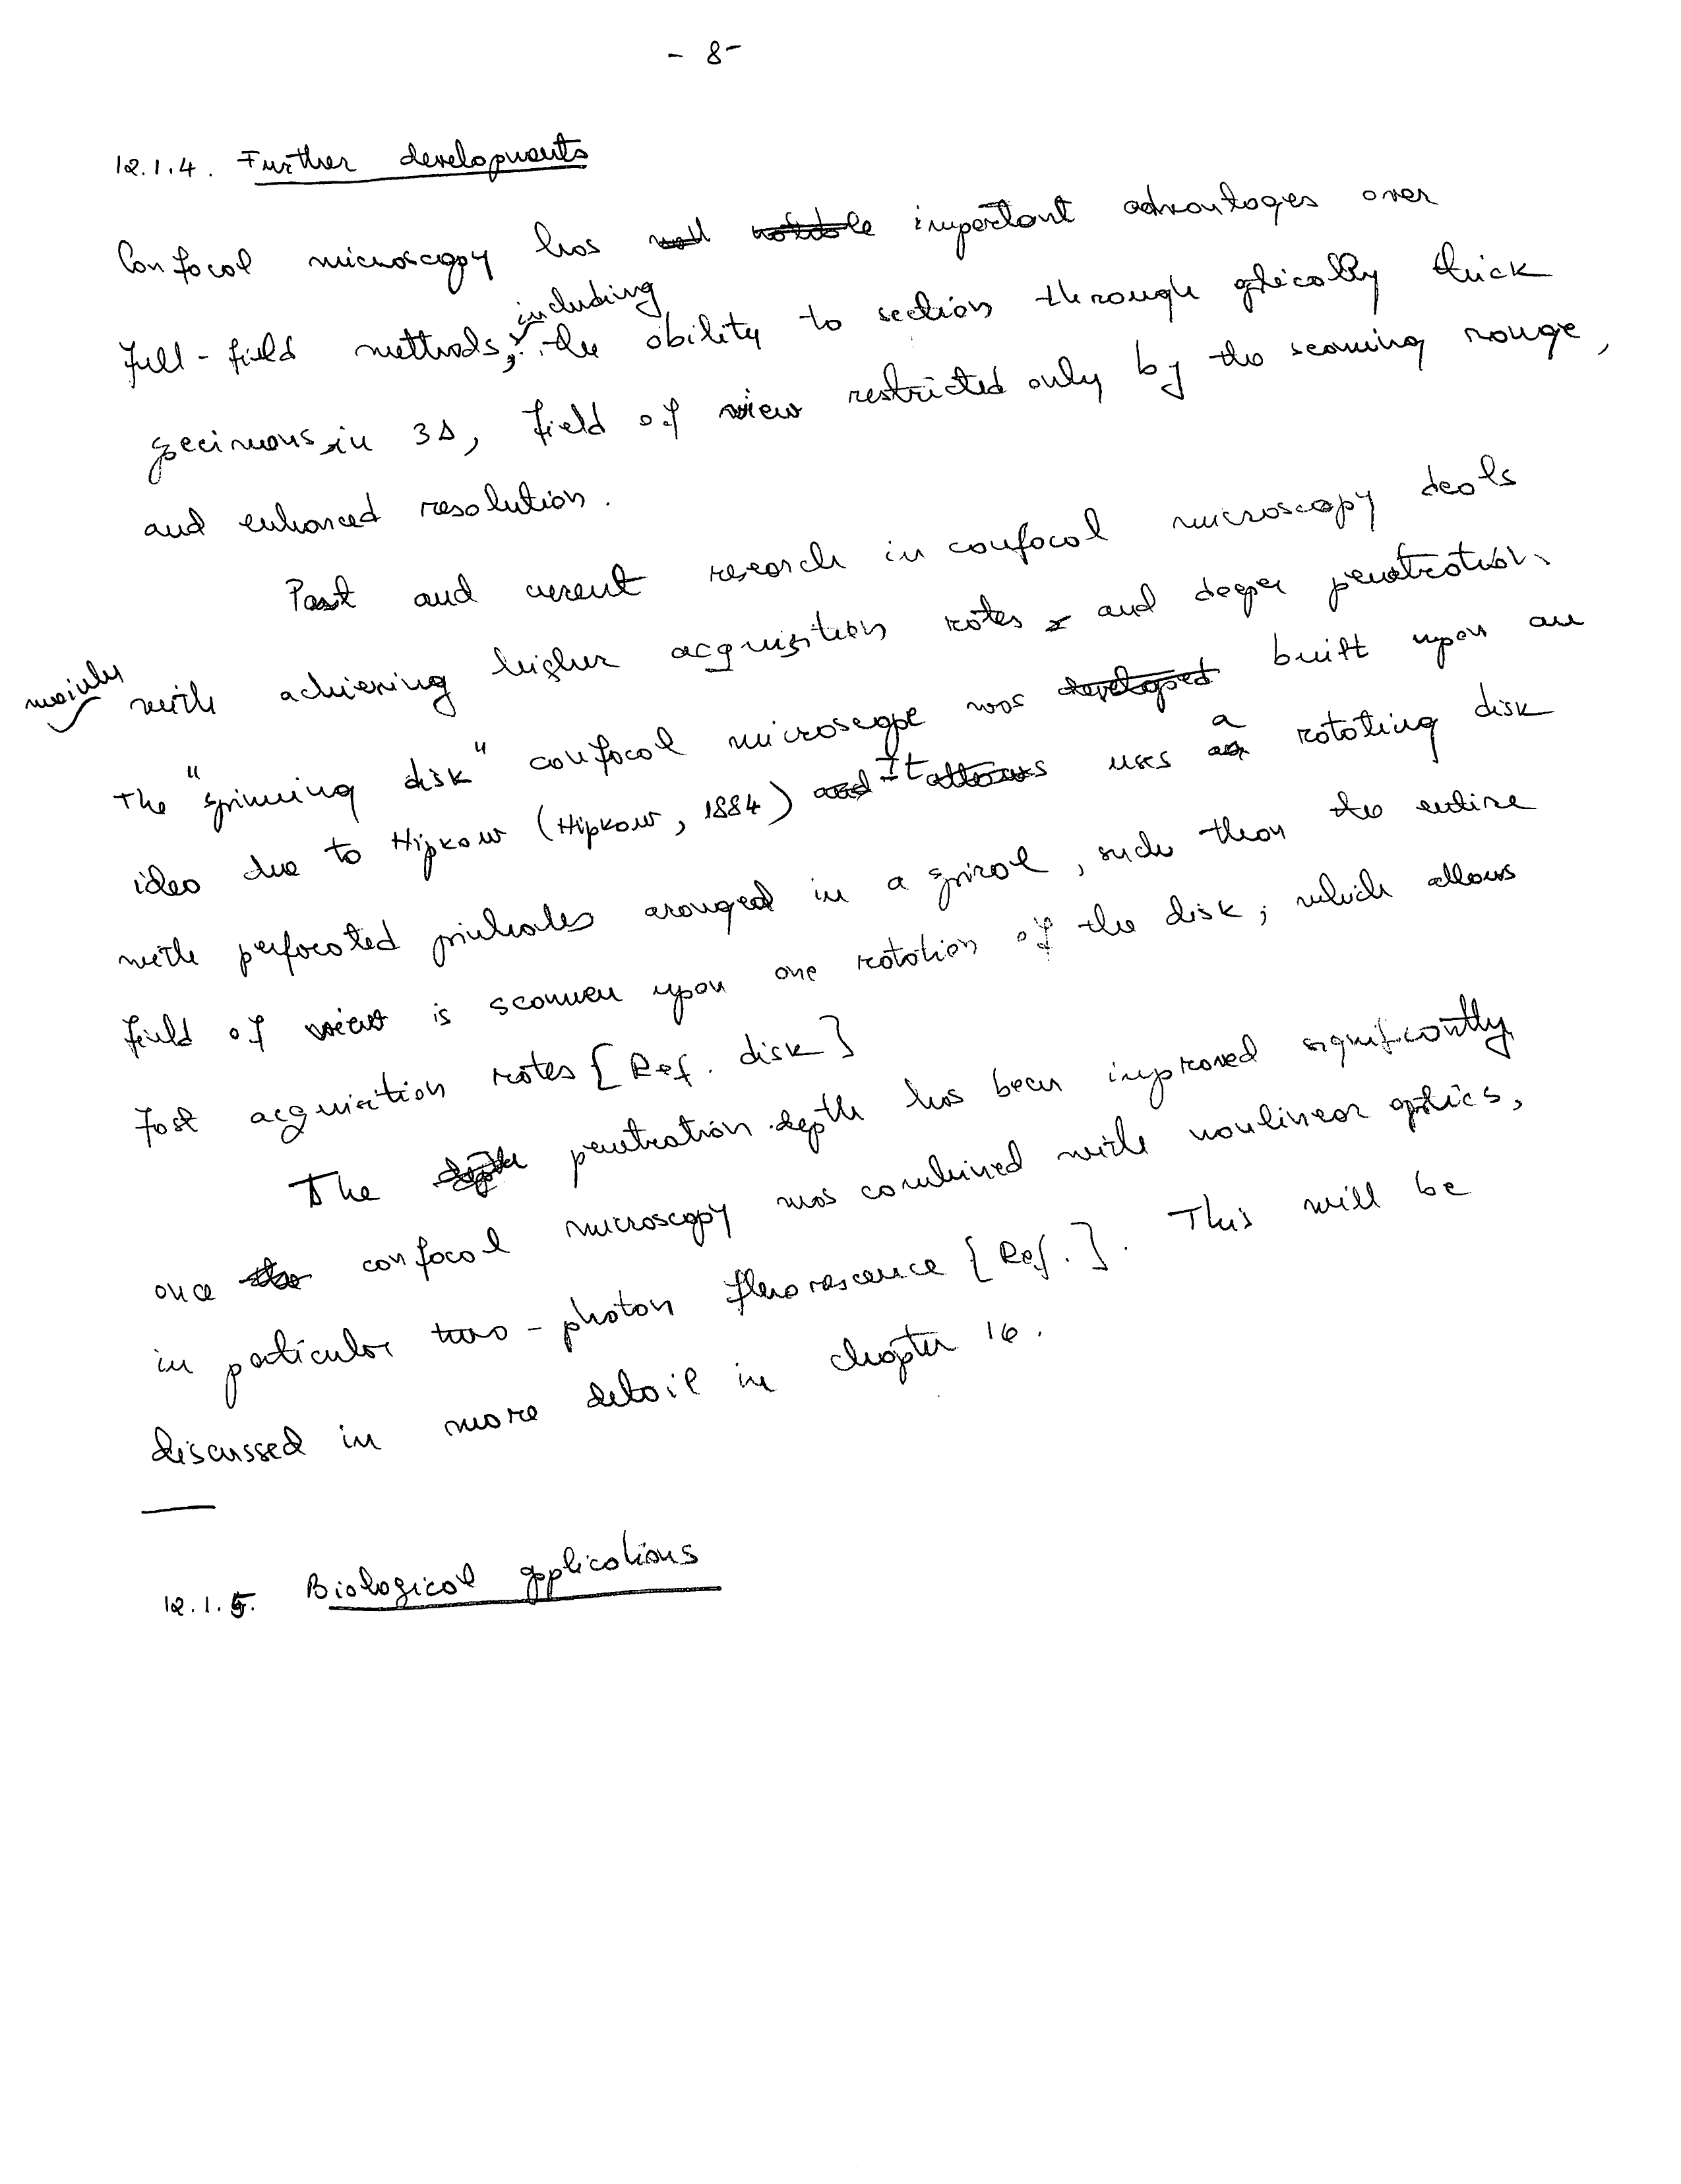 - 8 -
12.1.4. Further developments
Confocal microscopy has important advantages over
full-field methods, including the ability to section through optically thick
specimens in 3D, field of view restricted only by the scanning range,
and enhanced resolution.
Past and current research in confocal microscopy deals
mainly with achieving higher acquisition rates and deeper penetration.
The "spinning disk" confocal microscope was built upon an
idea due to Hipkow (Hipkow, 1884) It uses a rotating disk
with perforated pinholes arranged in a spiral, such than the entire
field of view is scanned upon one rotation of the disk; which allows
fast acquisition rates [Ref. disk]
The penetration depth has been improved significantly
once confocal microscopy was combined with nonlinear optics,
in particular two-photon fluorescence [Ref.]. This will be
discussed in more detail in chapter 16.
12.1.5. Biological applications